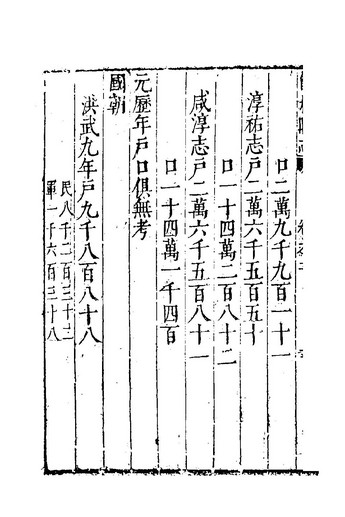 口二萬九千九百一十一
淳祐志戶二萬六千五百五十
口一十四萬二百八十二
咸淳志戶二萬六千五百八十一
口一十四萬一千四百
元歷年戶口俱無考
國朝
洪武九年戶九千八百八十八
民八千二百三十二
軍一千六百三十八